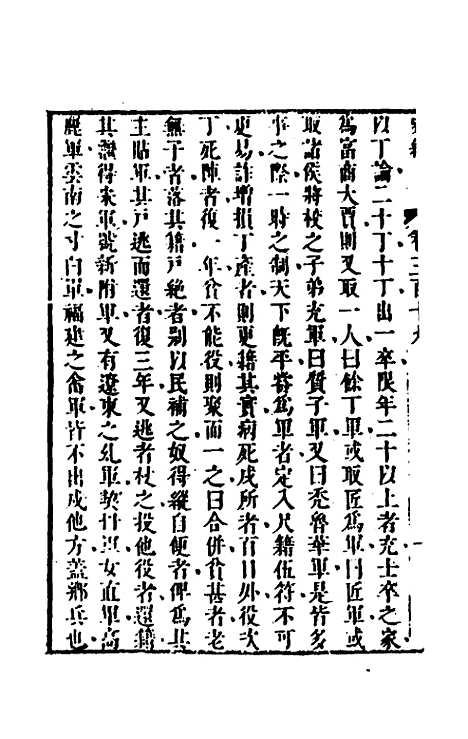 卷三百十九
以丁論二十丁十丁出一卒限年二十以上者充士卒之家
爲富商大賈則又取一人曰餘丁軍或取匠爲軍曰匠軍或
取諸侯將校之子弟充軍曰質子軍又曰禿魯華軍是皆多
事之際一時之制天下旣平嘗爲軍者定入尺籍伍符不可
更易詐增損丁產者則更籍其實病死戍所者百日外役次
丁死陣者復一年貧不能役則聚而一之曰合併貧甚者老
無子者落其籍戶絕者别以民補之奴得縱自便者俾爲其
主貼軍其戶逃而還者復三年又逃者杖之投他役者還籍
其繼得宋軍號新附軍又有遼東之乣軍契丹軍女直軍高
麗軍雲南之寸白軍福建之畬軍皆不出戍他方蓋鄉兵也